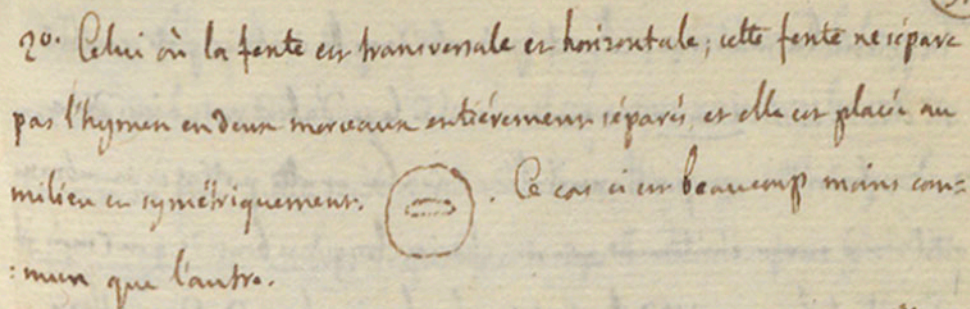 2º. Celui où la fente est transversale et horizontale; cette fente ne sépare
pas l'hymen en deux morceaux entièrement séparés, et elle est placée au
milieu en symétriquement. . Ce cas ci est beaucoup moins com=
:mun que l'autre.